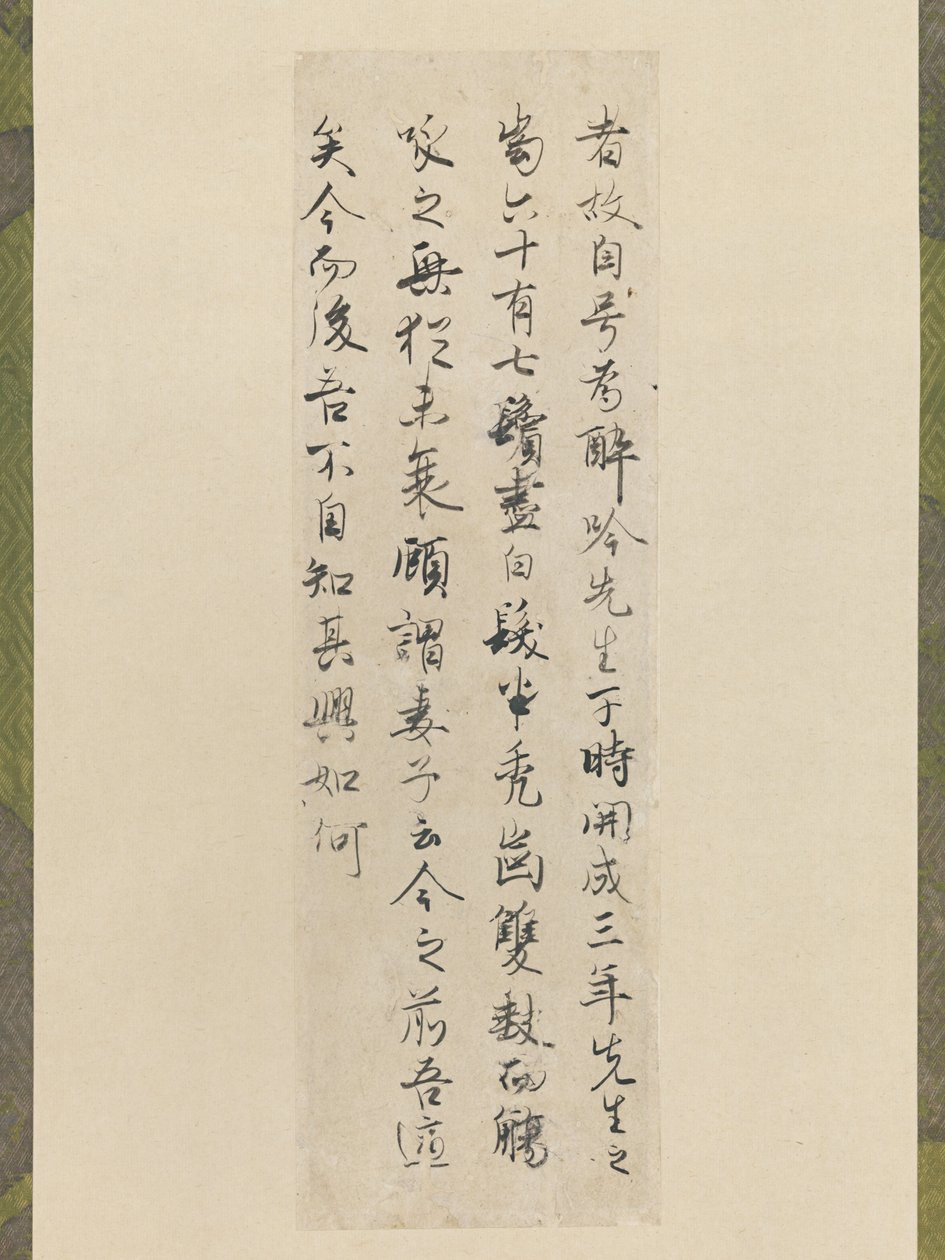 者故自号為酔吟先生于時開成三年先生之
歯六十有七鬢盡白髮半禿歯雙缺而觴
咏之興猶未衰顧謂妻子云今之前吾適
矣今而後吾不自知其興如何